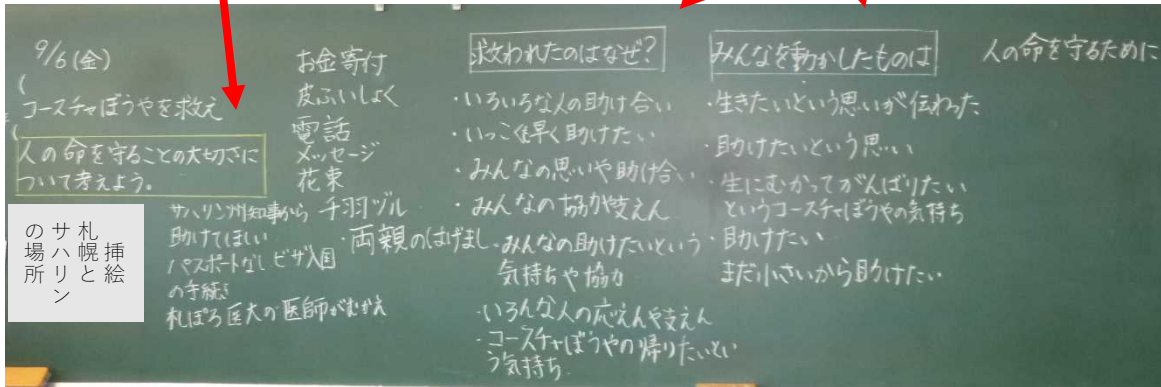 9/6(金)
コースチャぼうやを救え
人の命を守ることの大切さに
ついて考えよう。
挿絵
札幌と
サハリン
の場所
サハリン州知事から
助けてほしい
パスポートなし ビザ入国
の手続き
札ぽろ医大の医師がむかえ
お金寄付
皮ふいしょく
電話
メッセージ
花束
千羽ヅル
・両親のはげまし
救われたのはなぜ?
・いろいろな人の助け合い
・いっこく早く助けたい
・みんなの思いや助け合い
・みんなの協力や支えん
・みんなの助けたいという
気持ちや協力
・いろんな人の応えんや支えん
・コースチャぼうやの帰りたいとい
う気持ち
みんなを動かしたものは
・生きたいという思いが伝わった
・助けたいという思い
・生にむかってがんばりたい
というコースチャぼうやの気持ち
・助けたい
まだ小さいから助けたい
人の命を守るために